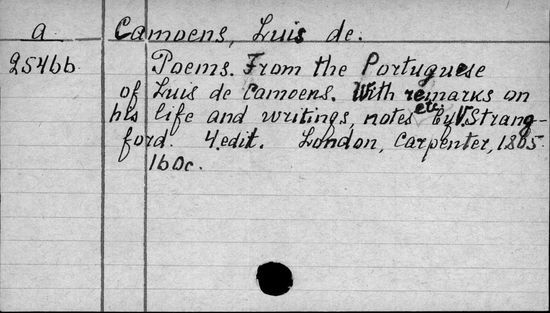 a Camoens, Luis de.
2546b Poems. From the Portuguese
of Luis de Camoens. With remarks on
his life and writings, notes etc. by V. Strang-
ford. 4.edit. London, Carpenter, 1805.
16o.